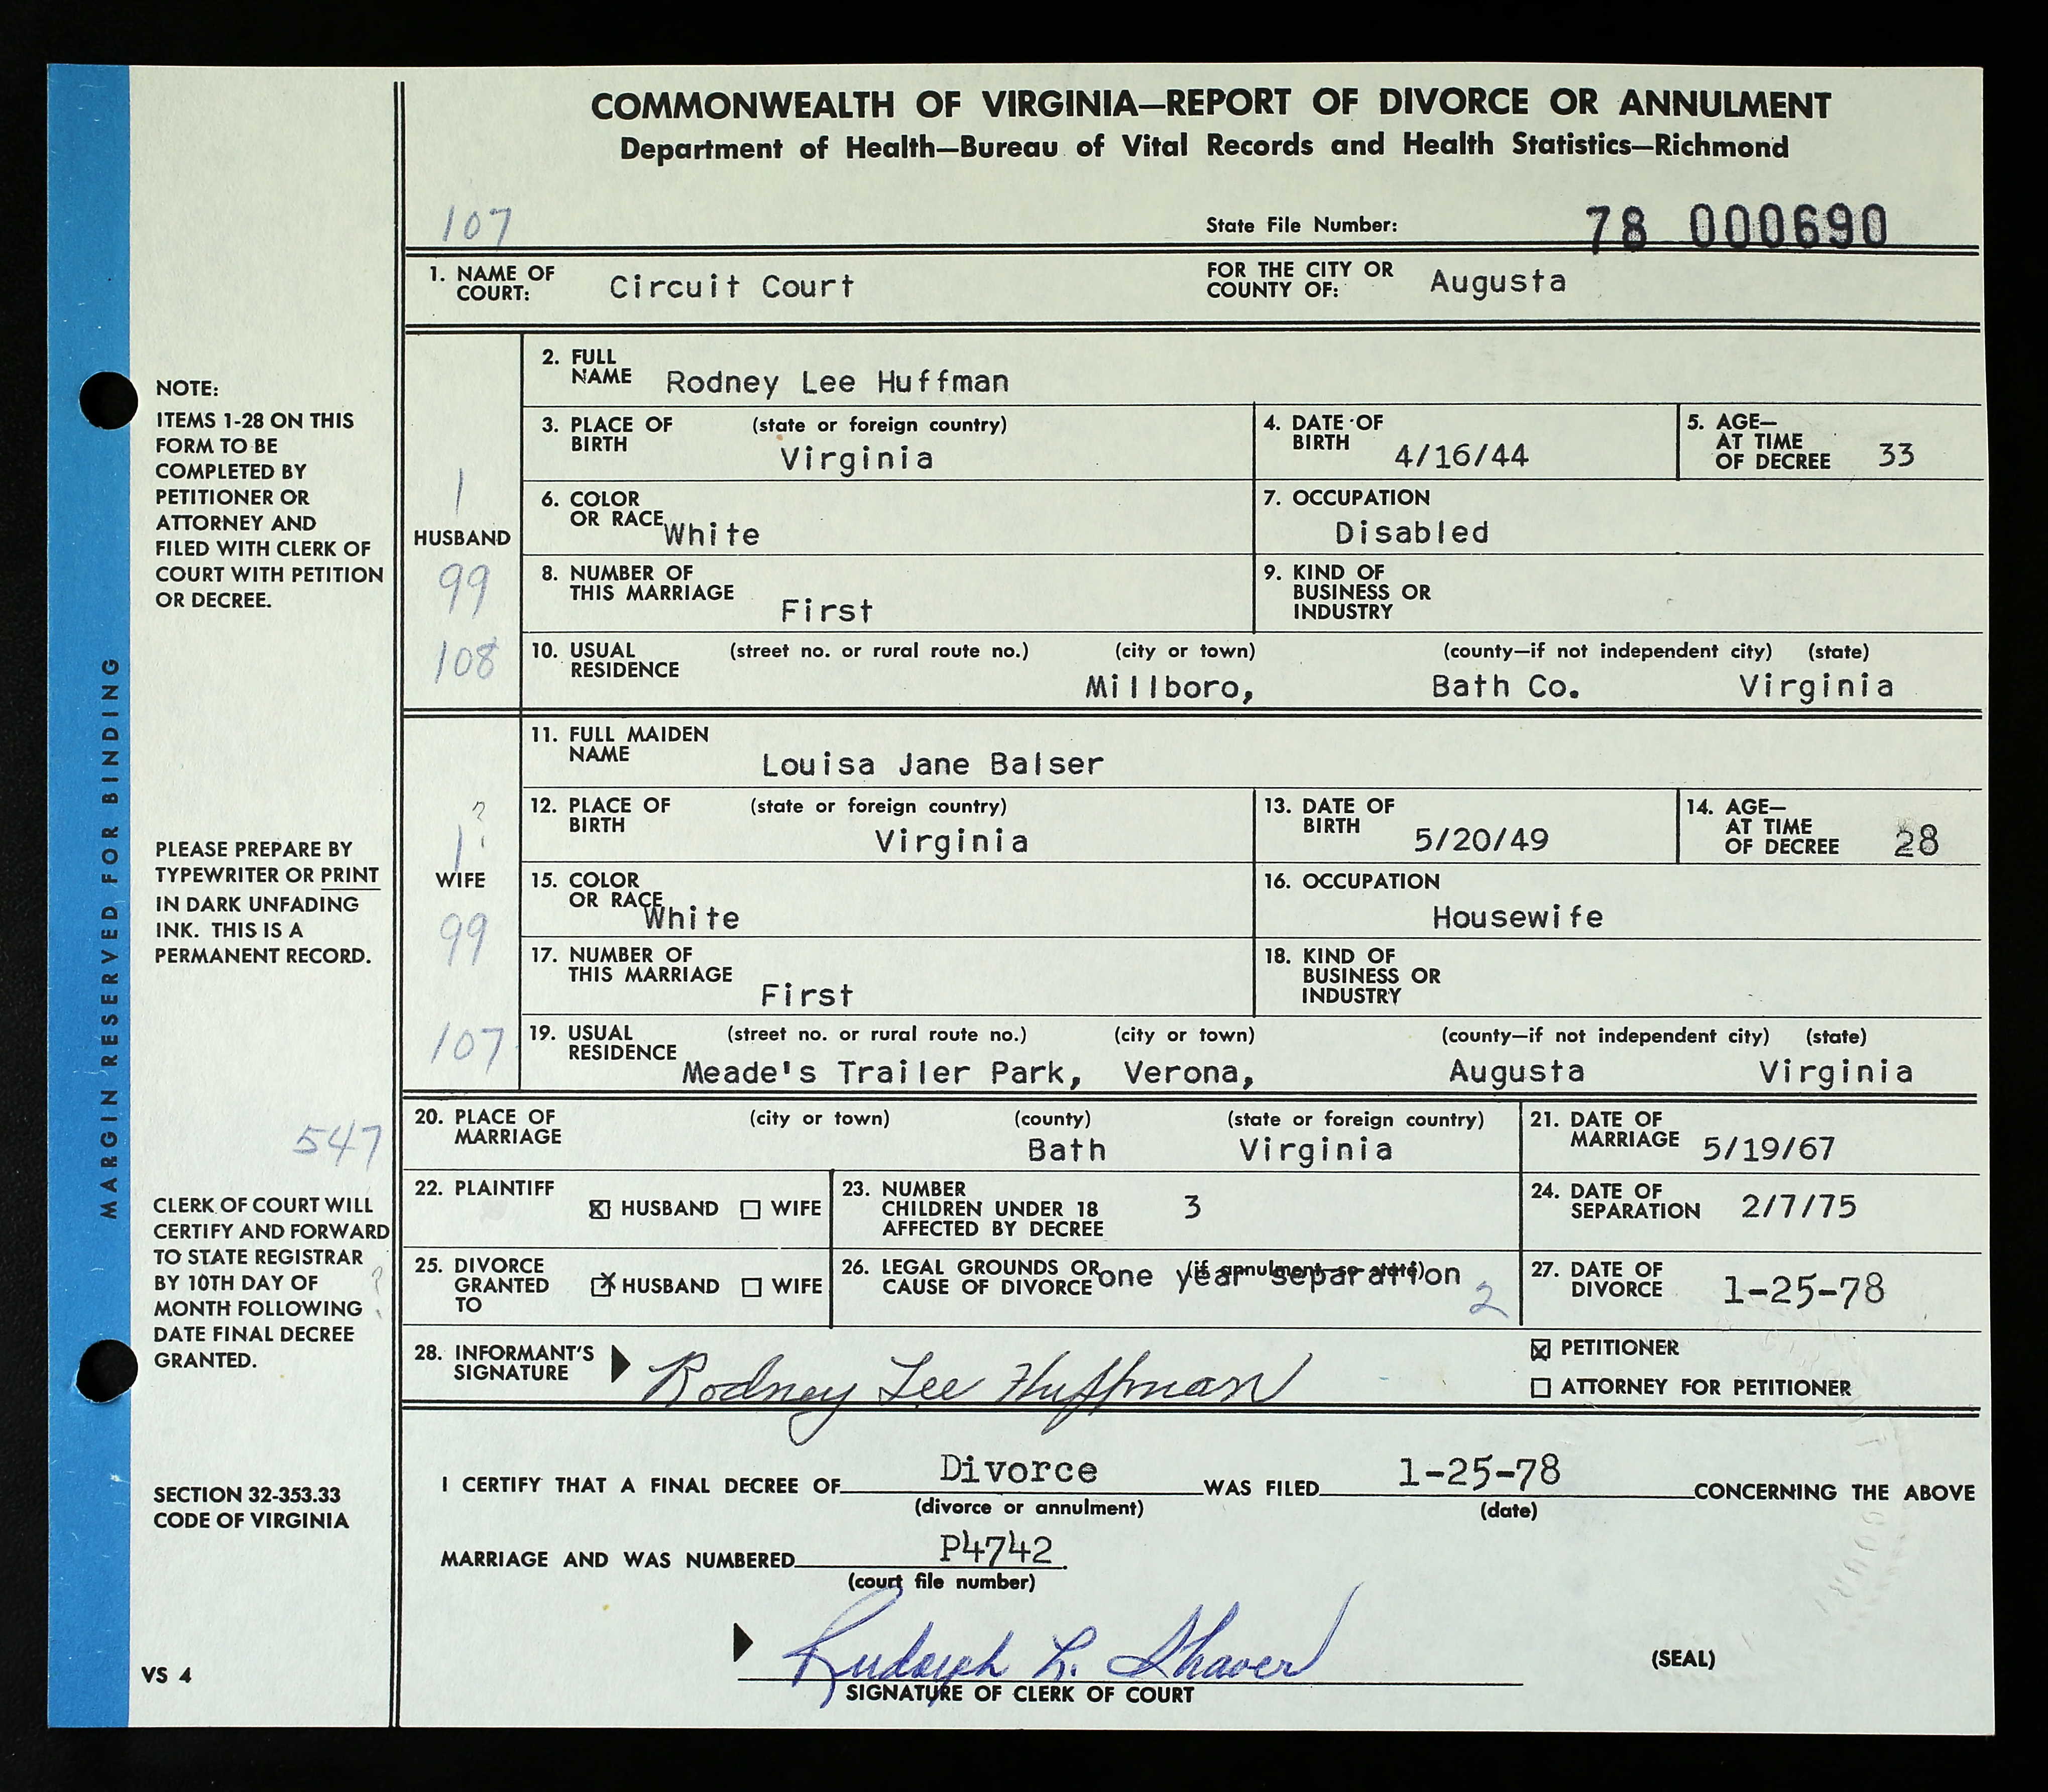 COMMONWEALTH OF VIRGINIA—REPORT OF DIVORCE OR ANNULMENT
Department of Health—Bureau of Vital Records and Health Statistics—Richmond
107
State File Number: 78 000690
1. NAME OF COURT: Circuit Court FOR THE CITY OR COUNTY OF: Augusta
HUSBAND
1
99
108
2. FULL NAME Rodney Lee Huffman
3. PLACE OF BIRTH (state or foreign country) Virginia
4. DATE OF BIRTH 4/16/44
5. AGE— AT TIME OF DECREE 33
6. COLOR OR RACE White
7. OCCUPATION Disabled
8. NUMBER OF THIS MARRIAGE First
9. KIND OF BUSINESS OR INDUSTRY
10. USUAL RESIDENCE (street no. or rural route no.) (city or town) (county—if not independent city) (state)
Millboro, Bath Co. Virginia
WIFE
1?
99
107
11. FULL MAIDEN NAME Louisa Jane Balser
12. PLACE OF BIRTH (state or foreign country) Virginia
13. DATE OF BIRTH 5/20/49
14. AGE— AT TIME OF DECREE 28
15. COLOR OR RACE White
16. OCCUPATION Housewife
17. NUMBER OF THIS MARRIAGE First
18. KIND OF BUSINESS OR INDUSTRY
19. USUAL RESIDENCE (street no. or rural route no.) (city or town) (county—if not independent city) (state)
Meade's Trailer Park, Verona, Augusta Virginia
20. PLACE OF MARRIAGE (city or town) (county) (state or foreign country)
Bath Virginia
21. DATE OF MARRIAGE 5/19/67
22. PLAINTIFF ☒ HUSBAND ☐ WIFE
23. NUMBER CHILDREN UNDER 18 AFFECTED BY DECREE 3
24. DATE OF SEPARATION 2/7/75
25. DIVORCE GRANTED TO ☒ HUSBAND ☐ WIFE
26. LEGAL GROUNDS OR CAUSE OF DIVORCE (if annulment—so state) one year separation 2
27. DATE OF DIVORCE 1-25-78
28. INFORMANT'S SIGNATURE Rodney Lee Huffman
☒ PETITIONER
☐ ATTORNEY FOR PETITIONER
I CERTIFY THAT A FINAL DECREE OF Divorce WAS FILED 1-25-78 CONCERNING THE ABOVE
(divorce or annulment) (date)
MARRIAGE AND WAS NUMBERED P4742
(court file number)
Rudolph L. Shaver
SIGNATURE OF CLERK OF COURT
(SEAL)
MARGIN RESERVED FOR BINDING
NOTE:
ITEMS 1-28 ON THIS
FORM TO BE
COMPLETED BY
PETITIONER OR
ATTORNEY AND
FILED WITH CLERK OF
COURT WITH PETITION
OR DECREE.
PLEASE PREPARE BY
TYPEWRITER OR PRINT
IN DARK UNFADING
INK. THIS IS A
PERMANENT RECORD.
547
CLERK OF COURT WILL
CERTIFY AND FORWARD
TO STATE REGISTRAR
BY 10TH DAY OF ?
MONTH FOLLOWING
DATE FINAL DECREE
GRANTED.
SECTION 32-353.33
CODE OF VIRGINIA
VS 4